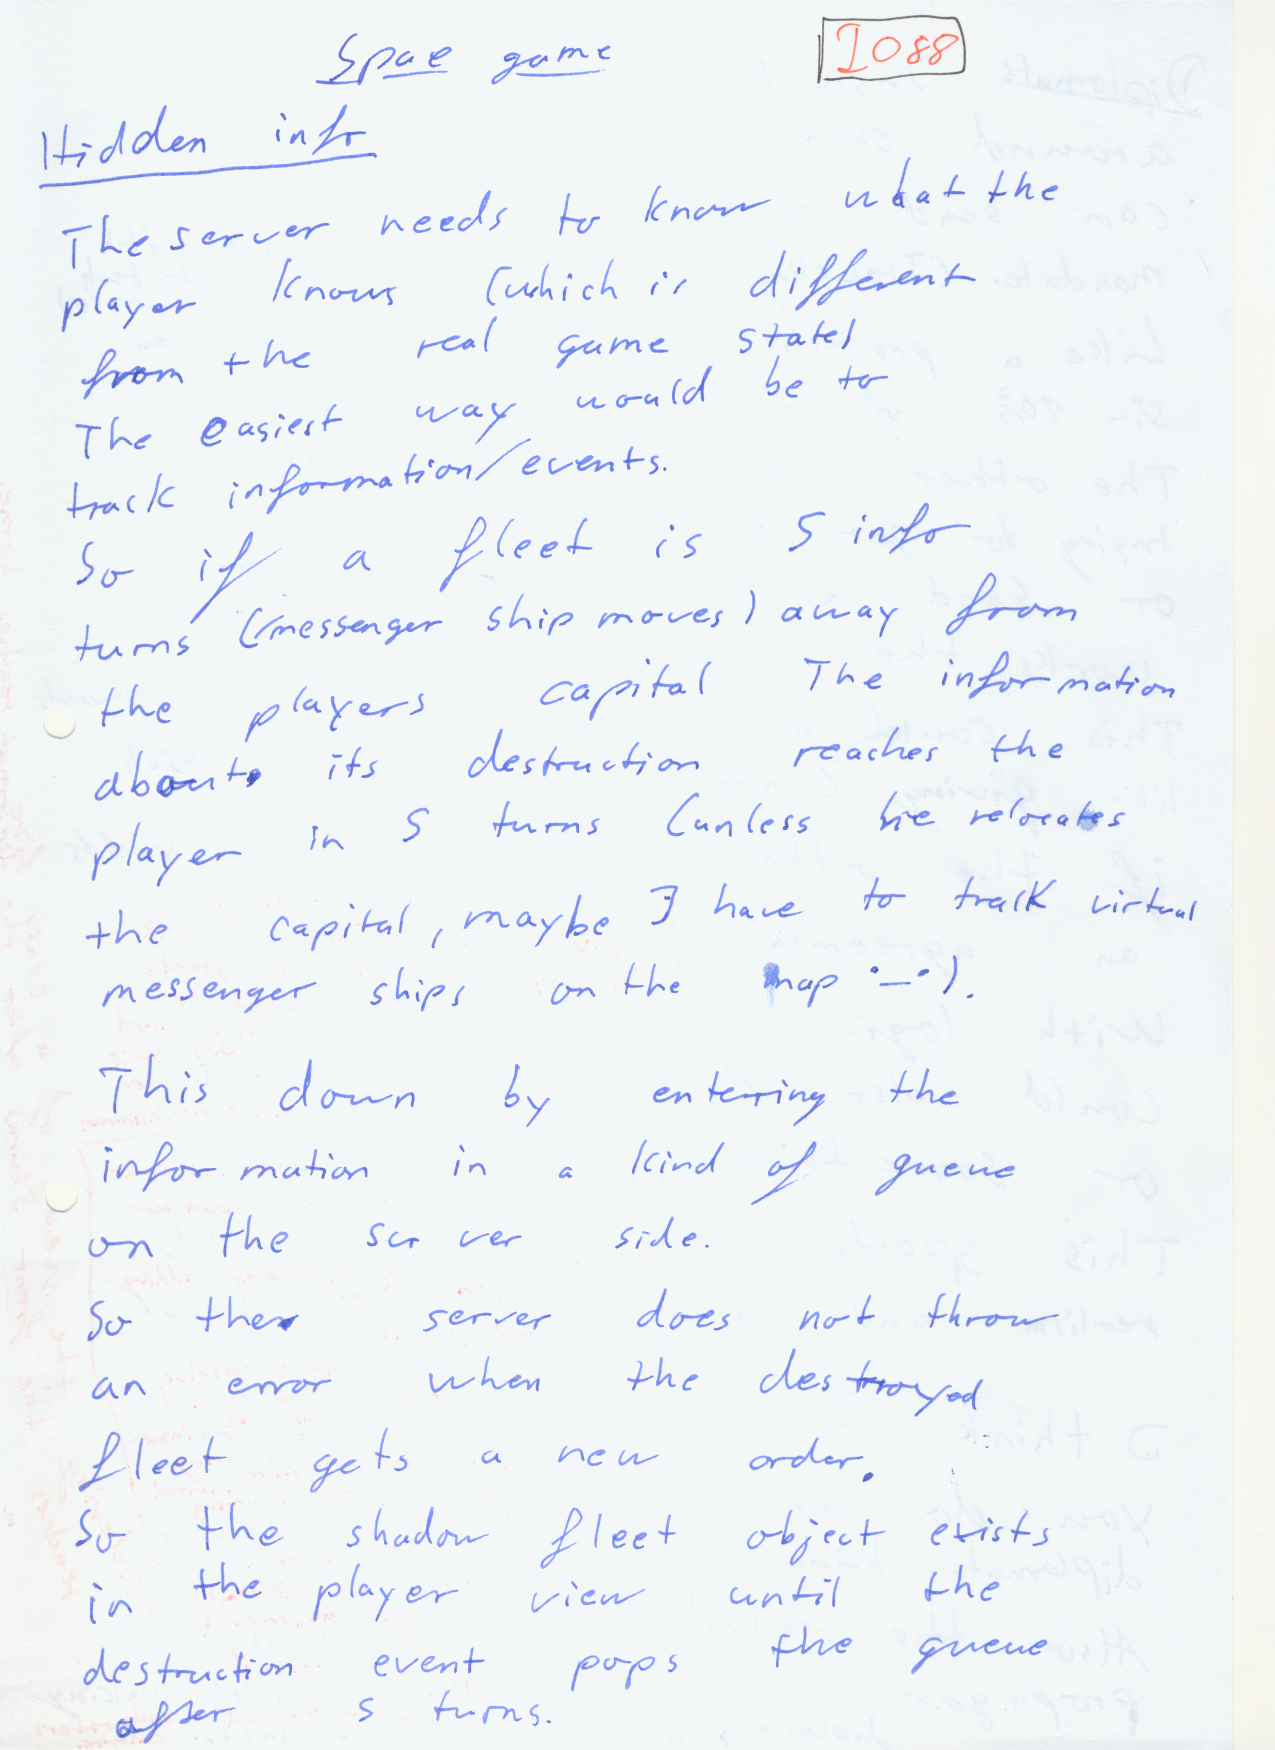 Space game
I088
Hidden info
The server needs to know what the
player knows (which is different
from the real game state)
The easiest way would be to
track information/events.
So if a fleet is 5 info
turns (messenger ship moves) away from
the players capital The information
about its destruction reaches the
player in 5 turns (unless he relocates
the capital, maybe I have to track virtual
messenger ships on the map •–•).
This down by entering the
information in a kind of queue
on the server side.
So the server does not throw
an error when the destroyed
fleet gets a new order.
So the shadow fleet object exists
in the player view until the
destruction event pops the queue
after 5 turns.